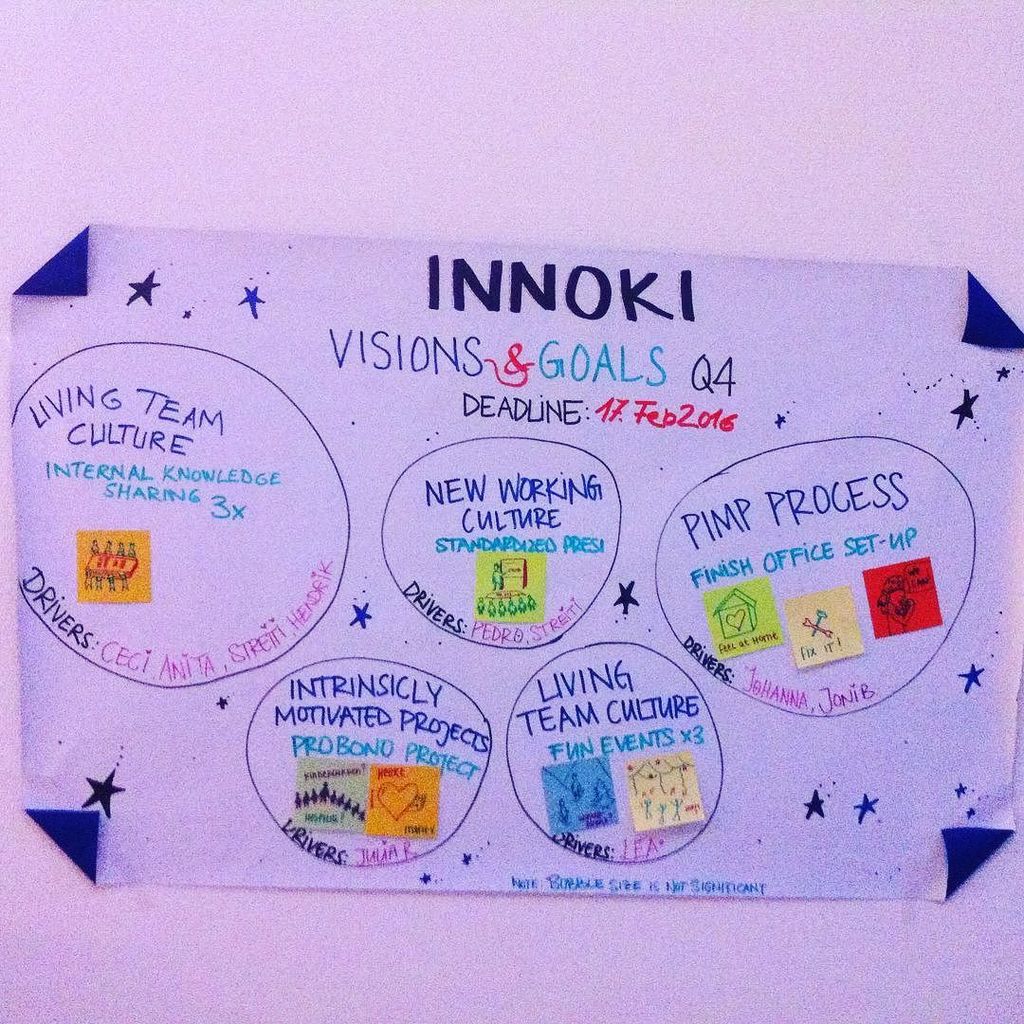 INNOKI
VISIONS & GOALS Q4
DEADLINE: 17. Feb 2016
LIVING TEAM
CULTURE
INTERNAL KNOWLEDGE
SHARING 3x
DRIVERS: CECI ANITA, STREITI, HENDRIK
NEW WORKING
CULTURE
STANDARDIZED PRESI
DRIVERS: PEDRO, STREITI
PIMP PROCESS
FINISH OFFICE SET-UP
FEEL at HOME
FIX IT!
DRIVERS: JOHANNA, JONIB
INTRINSICLY
MOTIVATED PROJECTS
PROBONO PROJECT
DRIVERS: JULIA R.
LIVING
TEAM CULTURE
FUN EVENTS x3
DRIVERS: LEA
NOTE: BUBBLE SIZE IS NOT SIGNIFICANT